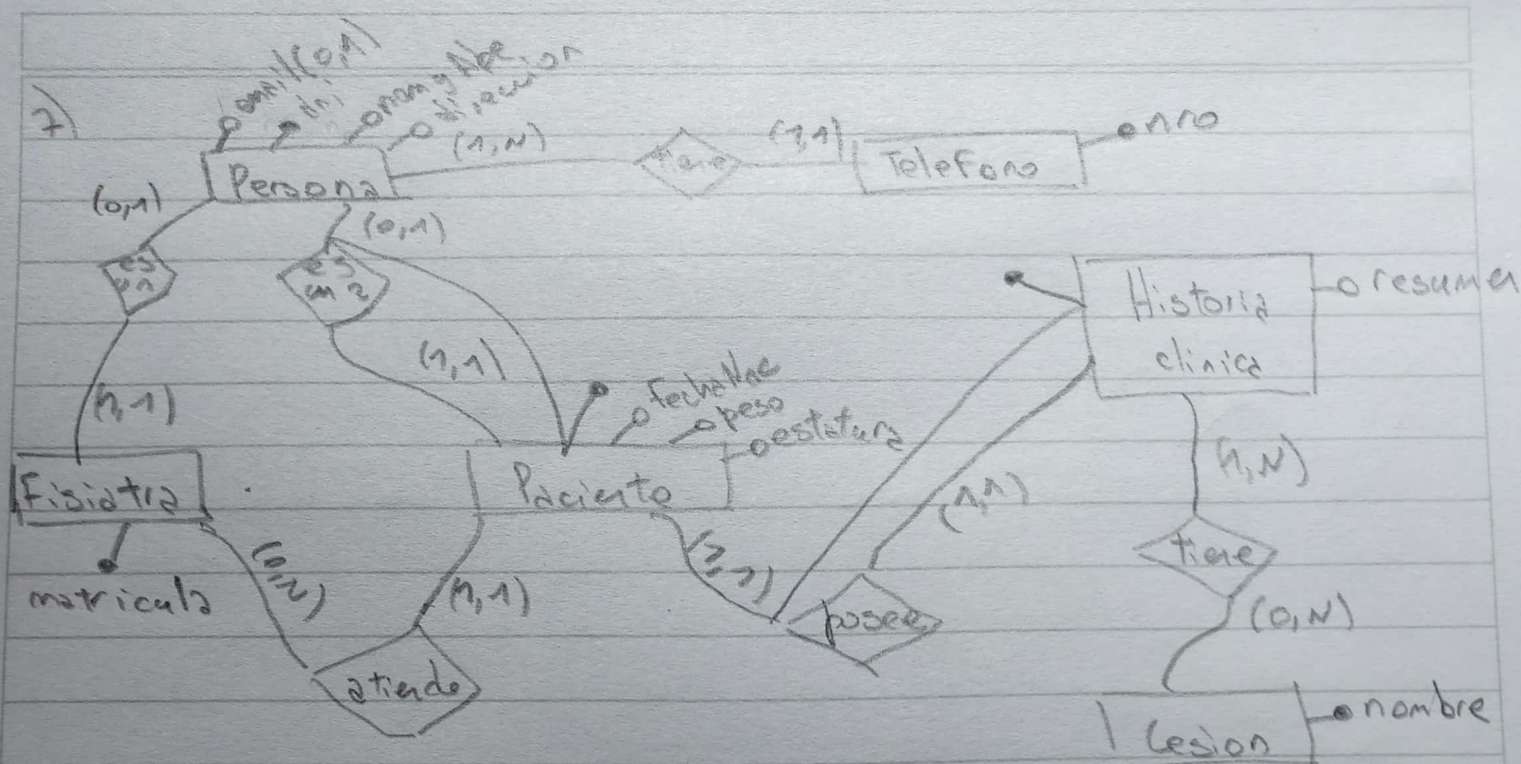 7)
email(0,1)
dni
nom y Ape
direccion
Persona
(1,N)
tiene
(1,1)
Telefono
nro
(0,1)
(0,1)
es un
es un 2
(1,1)
(1,1)
Historia clinica
resumen
fechaNac
peso
estatura
Fisiatra
Paciente
matricula
(1,1)
(1,1)
(1,N)
tiene
posee
atiende
(0,N)
nombre
Lesion